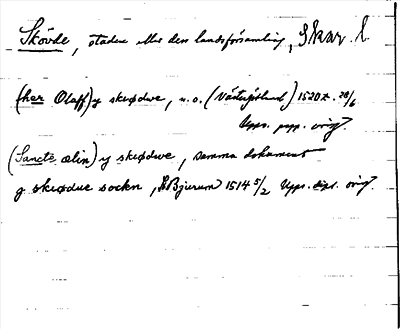 Skövde, staden eller dess landsförsamling, Skar. l.
(her Olaff) y skwødwe, n.o. (Västergötland) 1520t. 28/6
Upps. papp. orig.
(Sancte ælin) y skwødwe, samma dokument
y skwødue sockn, St Bjurum 1514 5/2 Upps. dipl. orig.